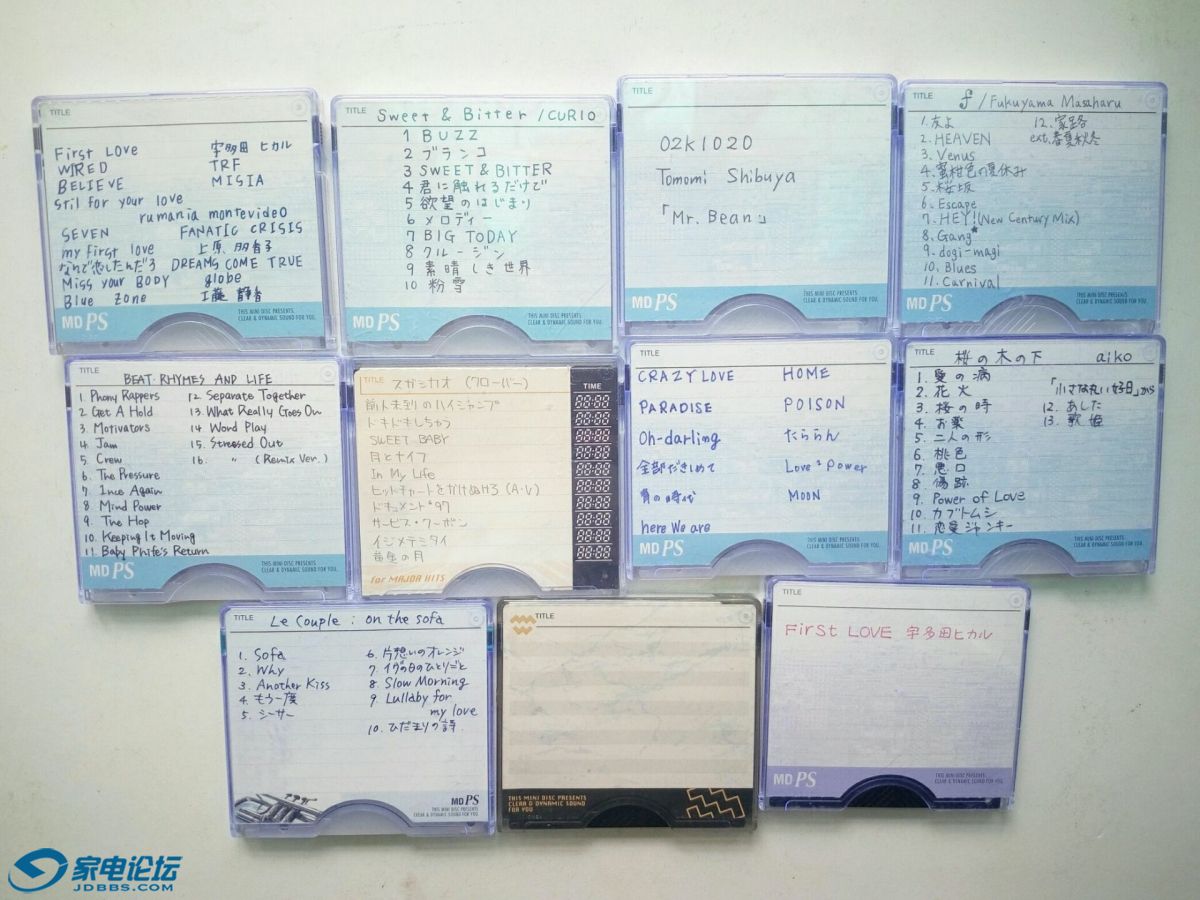 TITLE
First Love 宇多田 ヒカル
WIRED TRF
BELIEVE MISIA
Stil for your love
rumania montevideo
SEVEN FANATIC CRISIS
my first love 上原 多香子
なんで恋したんだろ DREAMS COME TRUE
Miss your BODY globe
Blue Zone 工藤 静香
MD PS
THIS MINI DISC PRESENTS
CLEAR & DYNAMIC SOUND FOR YOU.
TITLE
Sweet & Bitter / CURIO
1 BUZZ
2 ブランコ
3 SWEET & BITTER
4 君に触れるだけで
5 欲望のはじまり
6 メロディー
7 BIG TODAY
8 クルージン
9 素晴しき世界
10 粉雪
MD PS
THIS MINI DISC PRESENTS
CLEAR & DYNAMIC SOUND FOR YOU.
TITLE
02K1020
Tomomi Shibuya
「Mr. Bean」
MD PS
THIS MINI DISC PRESENTS
CLEAR & DYNAMIC SOUND FOR YOU.
TITLE
f / Fukuyama Masaharu
1.友よ 12. 家路
2. HEAVEN ext. 春夏秋冬
3. Venus
4. 蜜柑色の夏休み
5. 桜坂
6. Escape
7. HEY! (New Century Mix)
8. Gang*
9. dogi-magi
10. Blues
11. Carnival
MD PS
THIS MINI DISC PRESENTS
CLEAR & DYNAMIC SOUND FOR YOU.
TITLE
BEAT・RHYMES AND LIFE
1. Phony Rappers 12. Separate Together
2. Get A Hold 13. What Really Goes On
3. Motivators 14. Word Play
4. Jam 15. Stressed Out
5. Crew 16. 〃 (Remix Ver.)
6. The Pressure
7. Ince Again
8 Mind Power
9. The Hop
10. Keeping It Moving
11. Baby Phife's Return
MD PS
THIS MINI DISC PRESENTS
CLEAR & DYNAMIC SOUND FOR YOU.
TITLE
スガシカオ (クローバー)
TIME
前人未到のハイジャンプ
ドキドキしちゃう
SWEET BABY
月とナイフ
In My Life
ヒットチャートをかけぬけろ (A・V)
ドキュメント '97
サービス・クーポン
イジメテミタイ
黄金の月
for MAJOR HITS
TITLE
CRAZY LOVE HOME
PARADISE POISON
Oh-darling たららん
全部だきしめて Love² Power
青の時代 MOON
here We are
MD PS
THIS MINI DISC PRESENTS
CLEAR & DYNAMIC SOUND FOR YOU.
TITLE
桜の木の下 aiko
1. 愛の病 「小さな丸い好日」から
2. 花火 12. あした
3. 桜の時 13. 歌姫
4. お薬
5. 二人の形
6. 桃色
7. 悪口
8. 傷跡
9. Power of Love
10. カブトムシ
11. 恋愛ジャンキー
MD PS
THIS MINI DISC PRESENTS
CLEAR & DYNAMIC SOUND FOR YOU.
TITLE
Le Couple : on the sofa
1. Sofa 6. 片想いのオレンジ
2. Why 7. イヴの日のひとりごと
3. Another Kiss 8. Slow Morning
4. もう一度 9. Lullaby for
5. シーサー my love
10. ひだまりの詩.
MD PS
THIS MINI DISC PRESENTS
CLEAR & DYNAMIC SOUND FOR YOU.
TITLE
THIS MINI DISC PRESENTS
CLEAR & DYNAMIC SOUND
FOR YOU
TITLE
First LOVE 宇多田ヒカル
MD PS
THIS MINI DISC PRESENTS
CLEAR & DYNAMIC SOUND FOR YOU.
家电论坛
JDBBS.COM